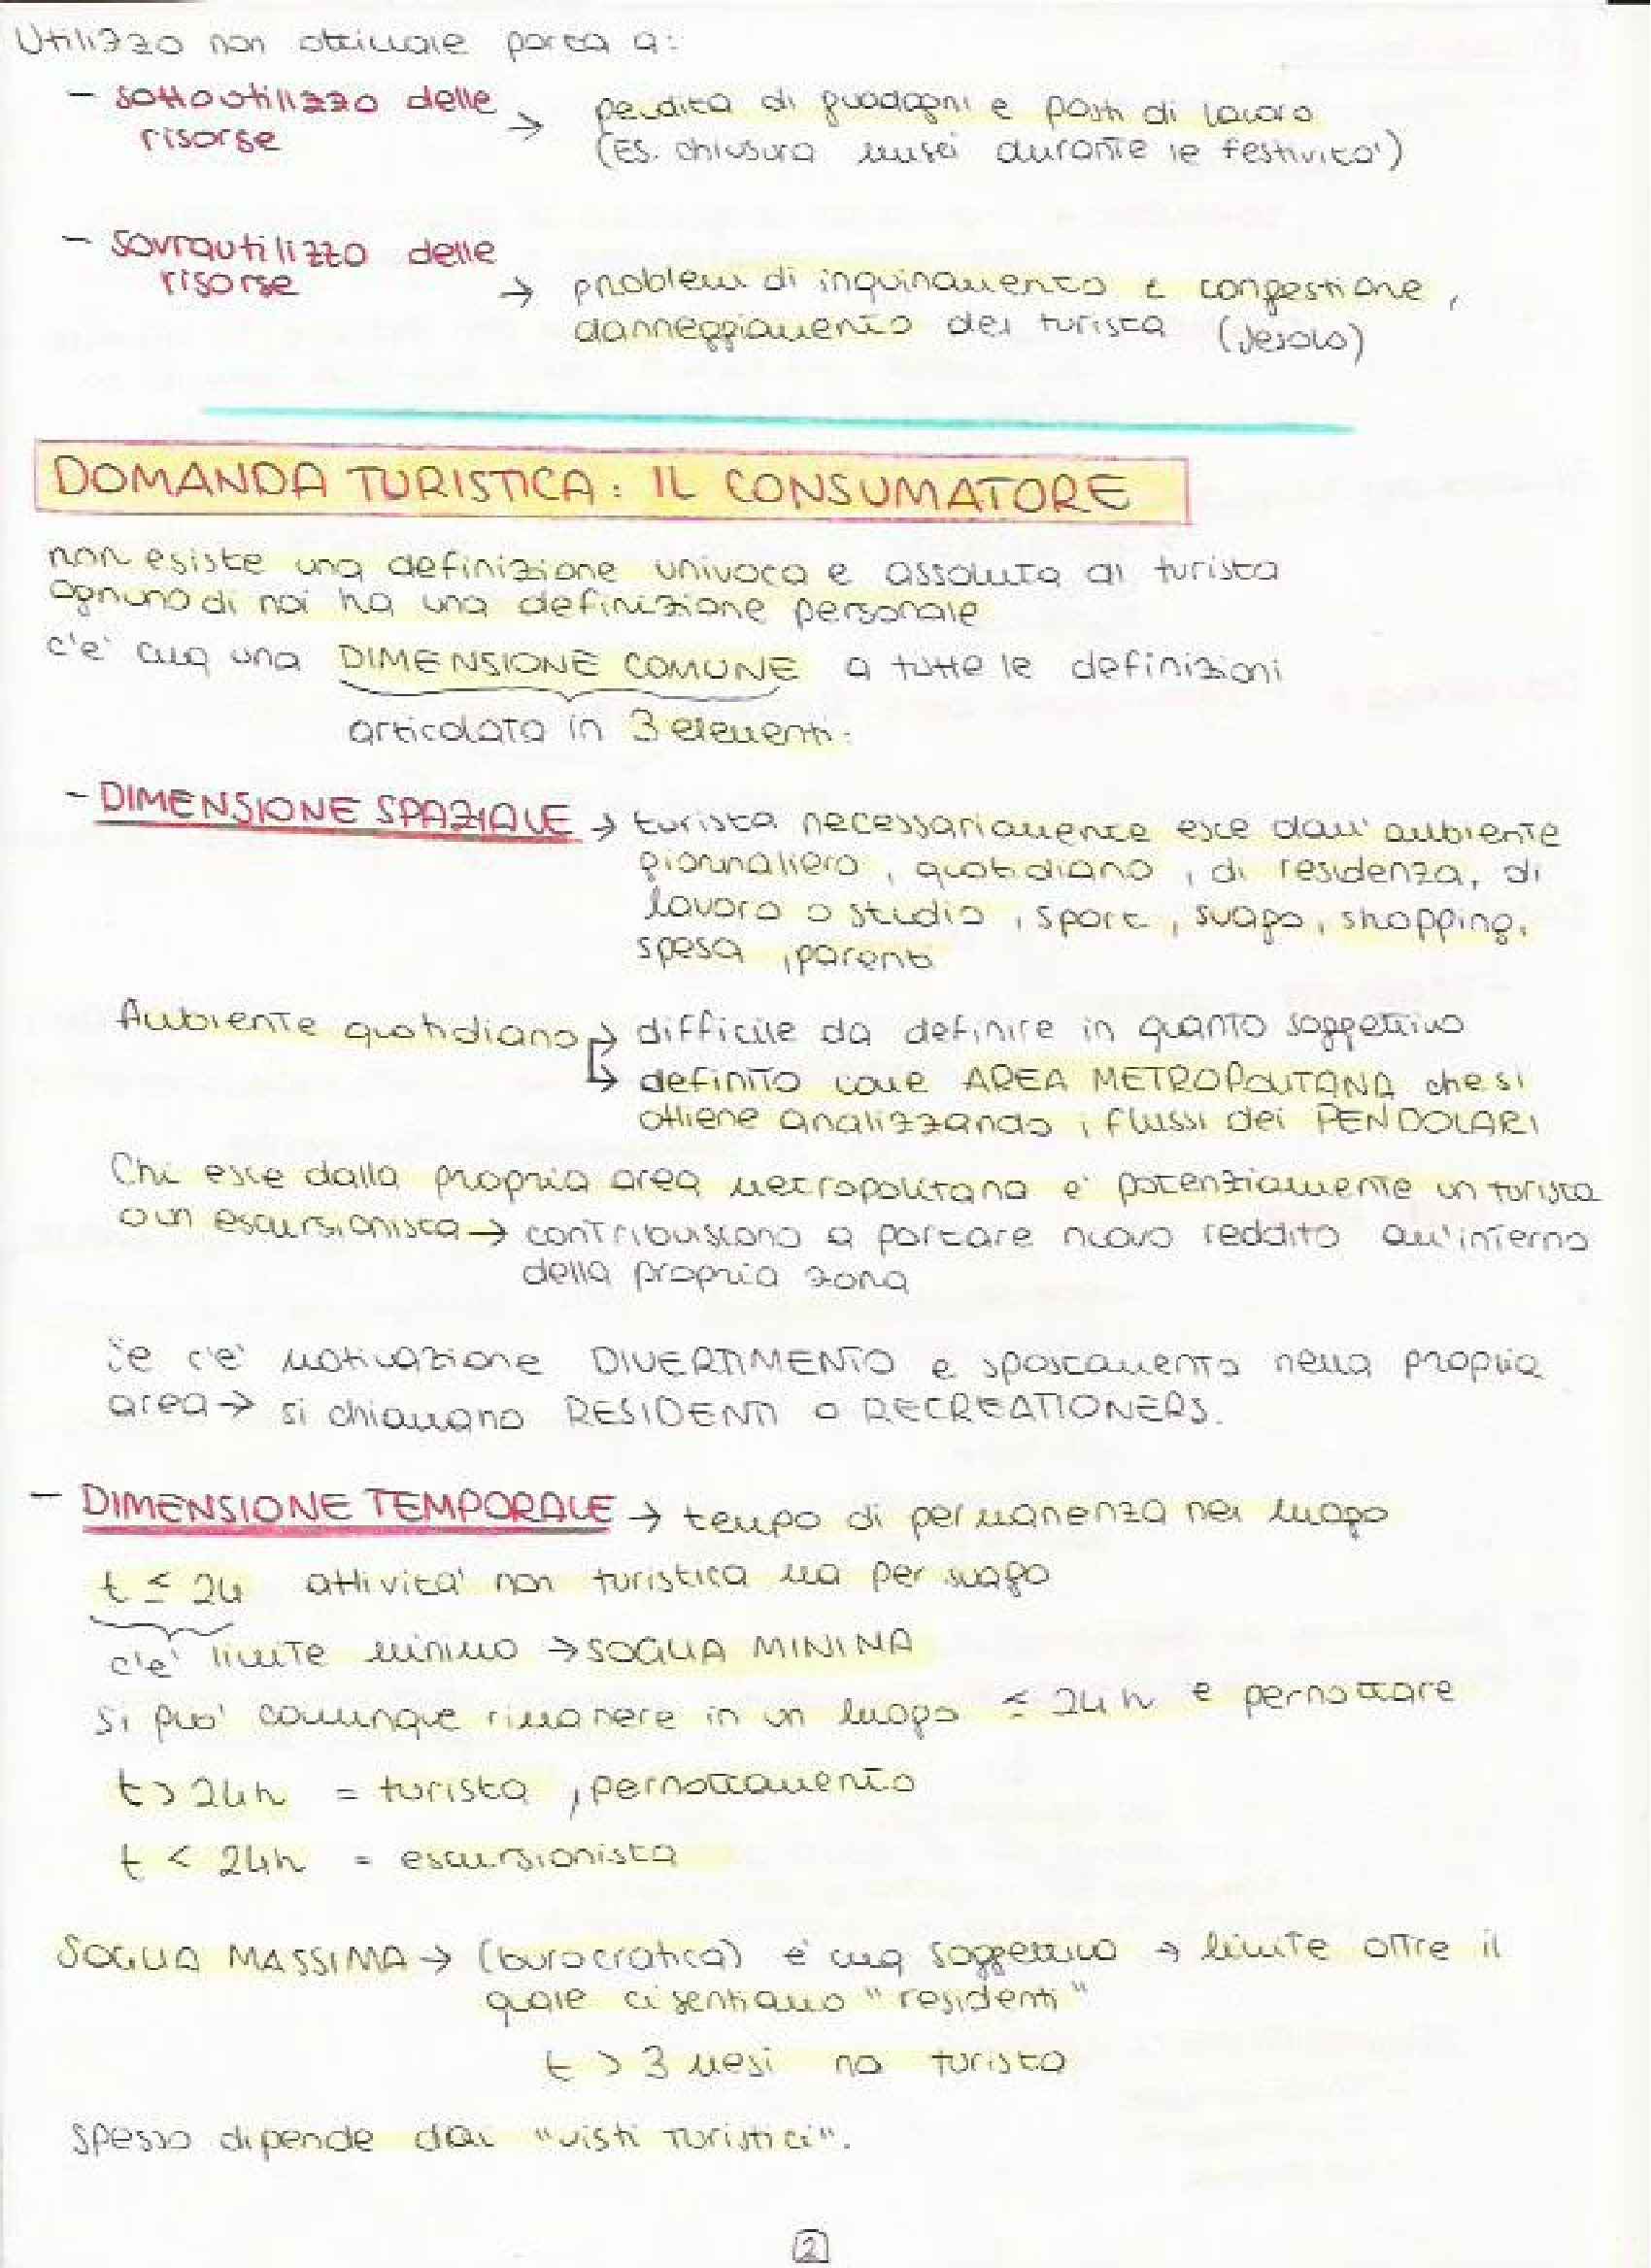 Utilizzo non ottimale porta a:
- sottoutilizzo delle risorse → perdita di guadagni e posti di lavoro
(Es. chiusura musei durante le festività')
- sovrautilizzo delle risorse → problemi di inquinamento e congestione,
danneggiamento del turista (Jesolo)
DOMANDA TURISTICA: IL CONSUMATORE
non esiste una definizione univoca e assoluta di turista
ognuno di noi ha una definizione personale
c'e' cmq una DIMENSIONE COMUNE a tutte le definizioni
articolata in 3 elementi:
- DIMENSIONE SPAZIALE → turista necessariamente esce dall'ambiente
giornaliero, quotidiano, di residenza, di
lavoro o studio, sport, svago, shopping,
spesa, parenti
Ambiente quotidiano → difficile da definire in quanto soggettivo
→ definito come AREA METROPOLITANA che si
ottiene analizzando i flussi dei PENDOLARI
Chi esce dalla propria area metropolitana e' potenzialmente un turista
o un escursionista → contribuiscono a portare nuovo reddito all'interno
della propria zona
Se c'e' motivazione DIVERTIMENTO e spostamento nella propria
area → si chiamano RESIDENTI o RECREATIONERS.
- DIMENSIONE TEMPORALE → tempo di permanenza nel luogo
t ≤ 24 attivita' non turistica ma per svago
c'e' limite minimo → SOGLIA MININA
Si puo' comunque rimanere in un luogo ≤ 24h e pernottare
t > 24h = turista, pernottamento
t < 24h = escursionista
SOGLIA MASSIMA → (burocratica) e' cmq soggettivo → limite oltre il
quale ci sentiamo "residenti"
t > 3 mesi no turista
spesso dipende dai "visti turistici".
2